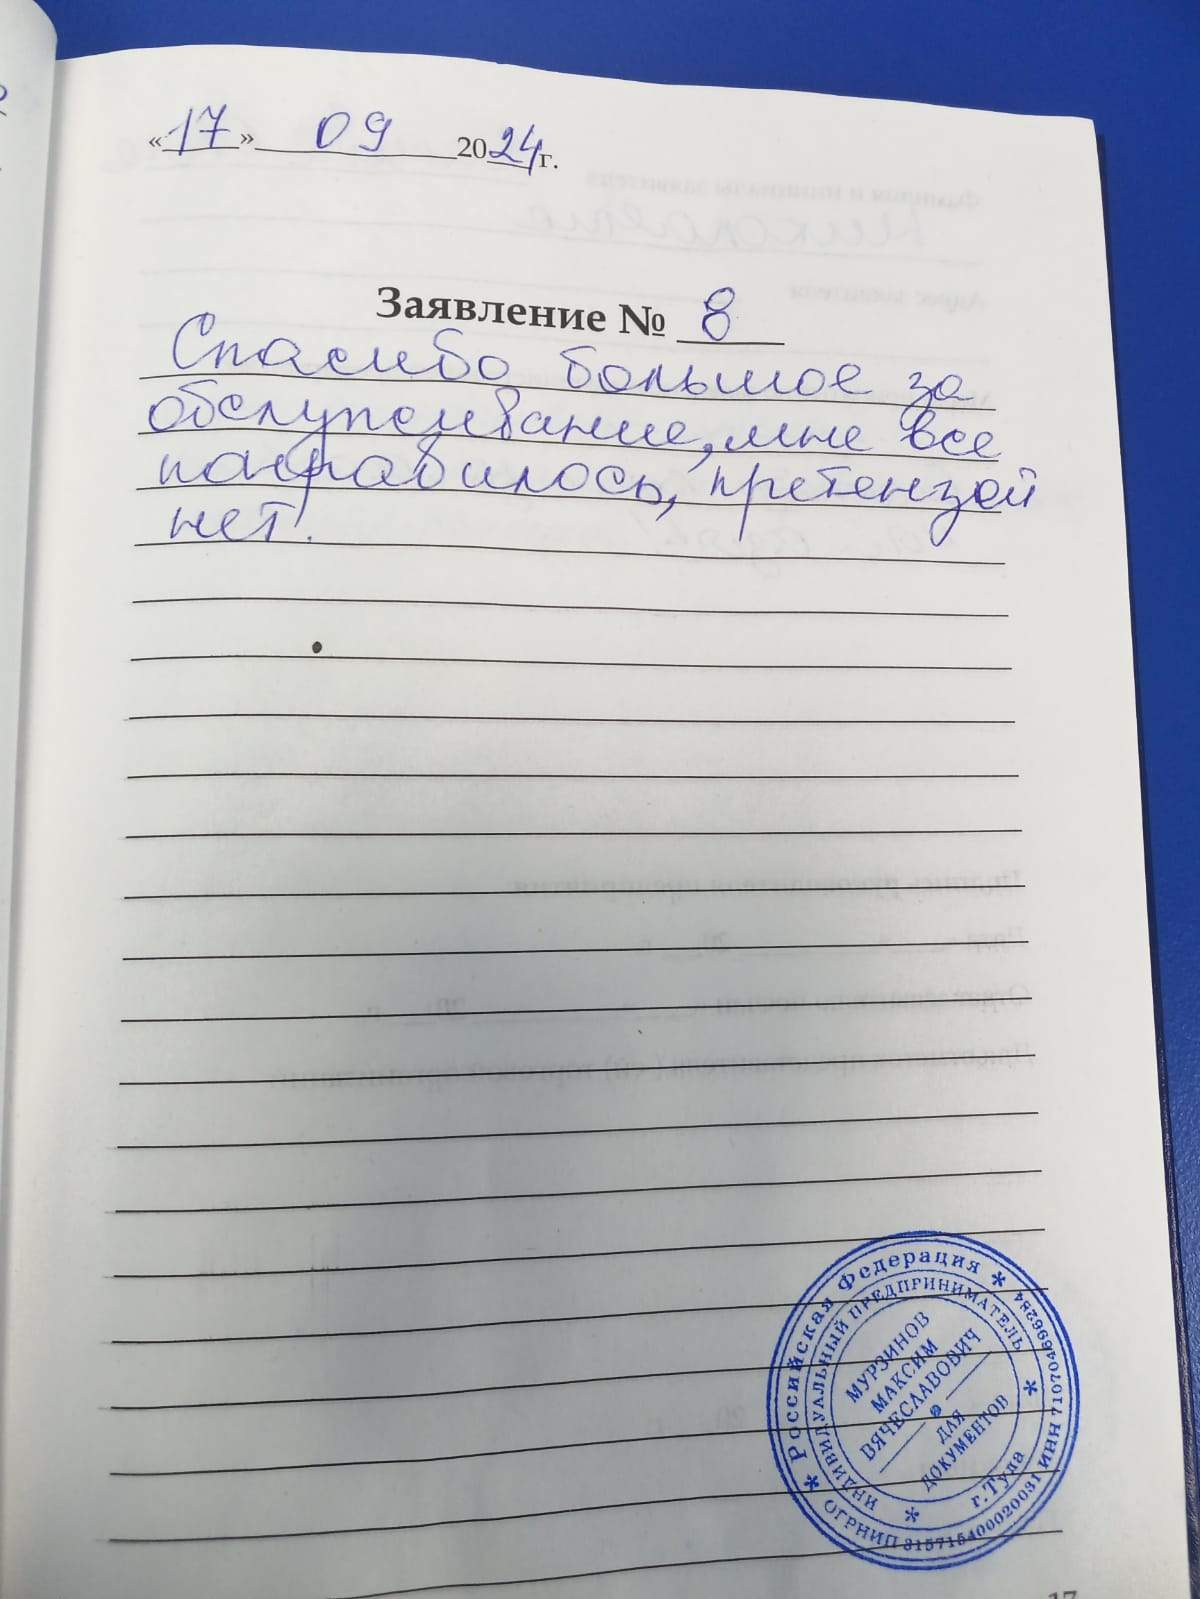 «17» 09 2024 г.
Заявление № 8
Спасибо большое за
обслуживание, мне все
понравилось, претензей
нет!
* Российская Федерация *
ОГРНИП 315715400020031 ИНН 710704696284
ИНДИВИДУАЛЬНЫЙ ПРЕДПРИНИМАТЕЛЬ
* г.Тула *
МУРЗИНОВ
МАКСИМ
ВЯЧЕСЛАВОВИЧ
ДЛЯ
ДОКУМЕНТОВ
17